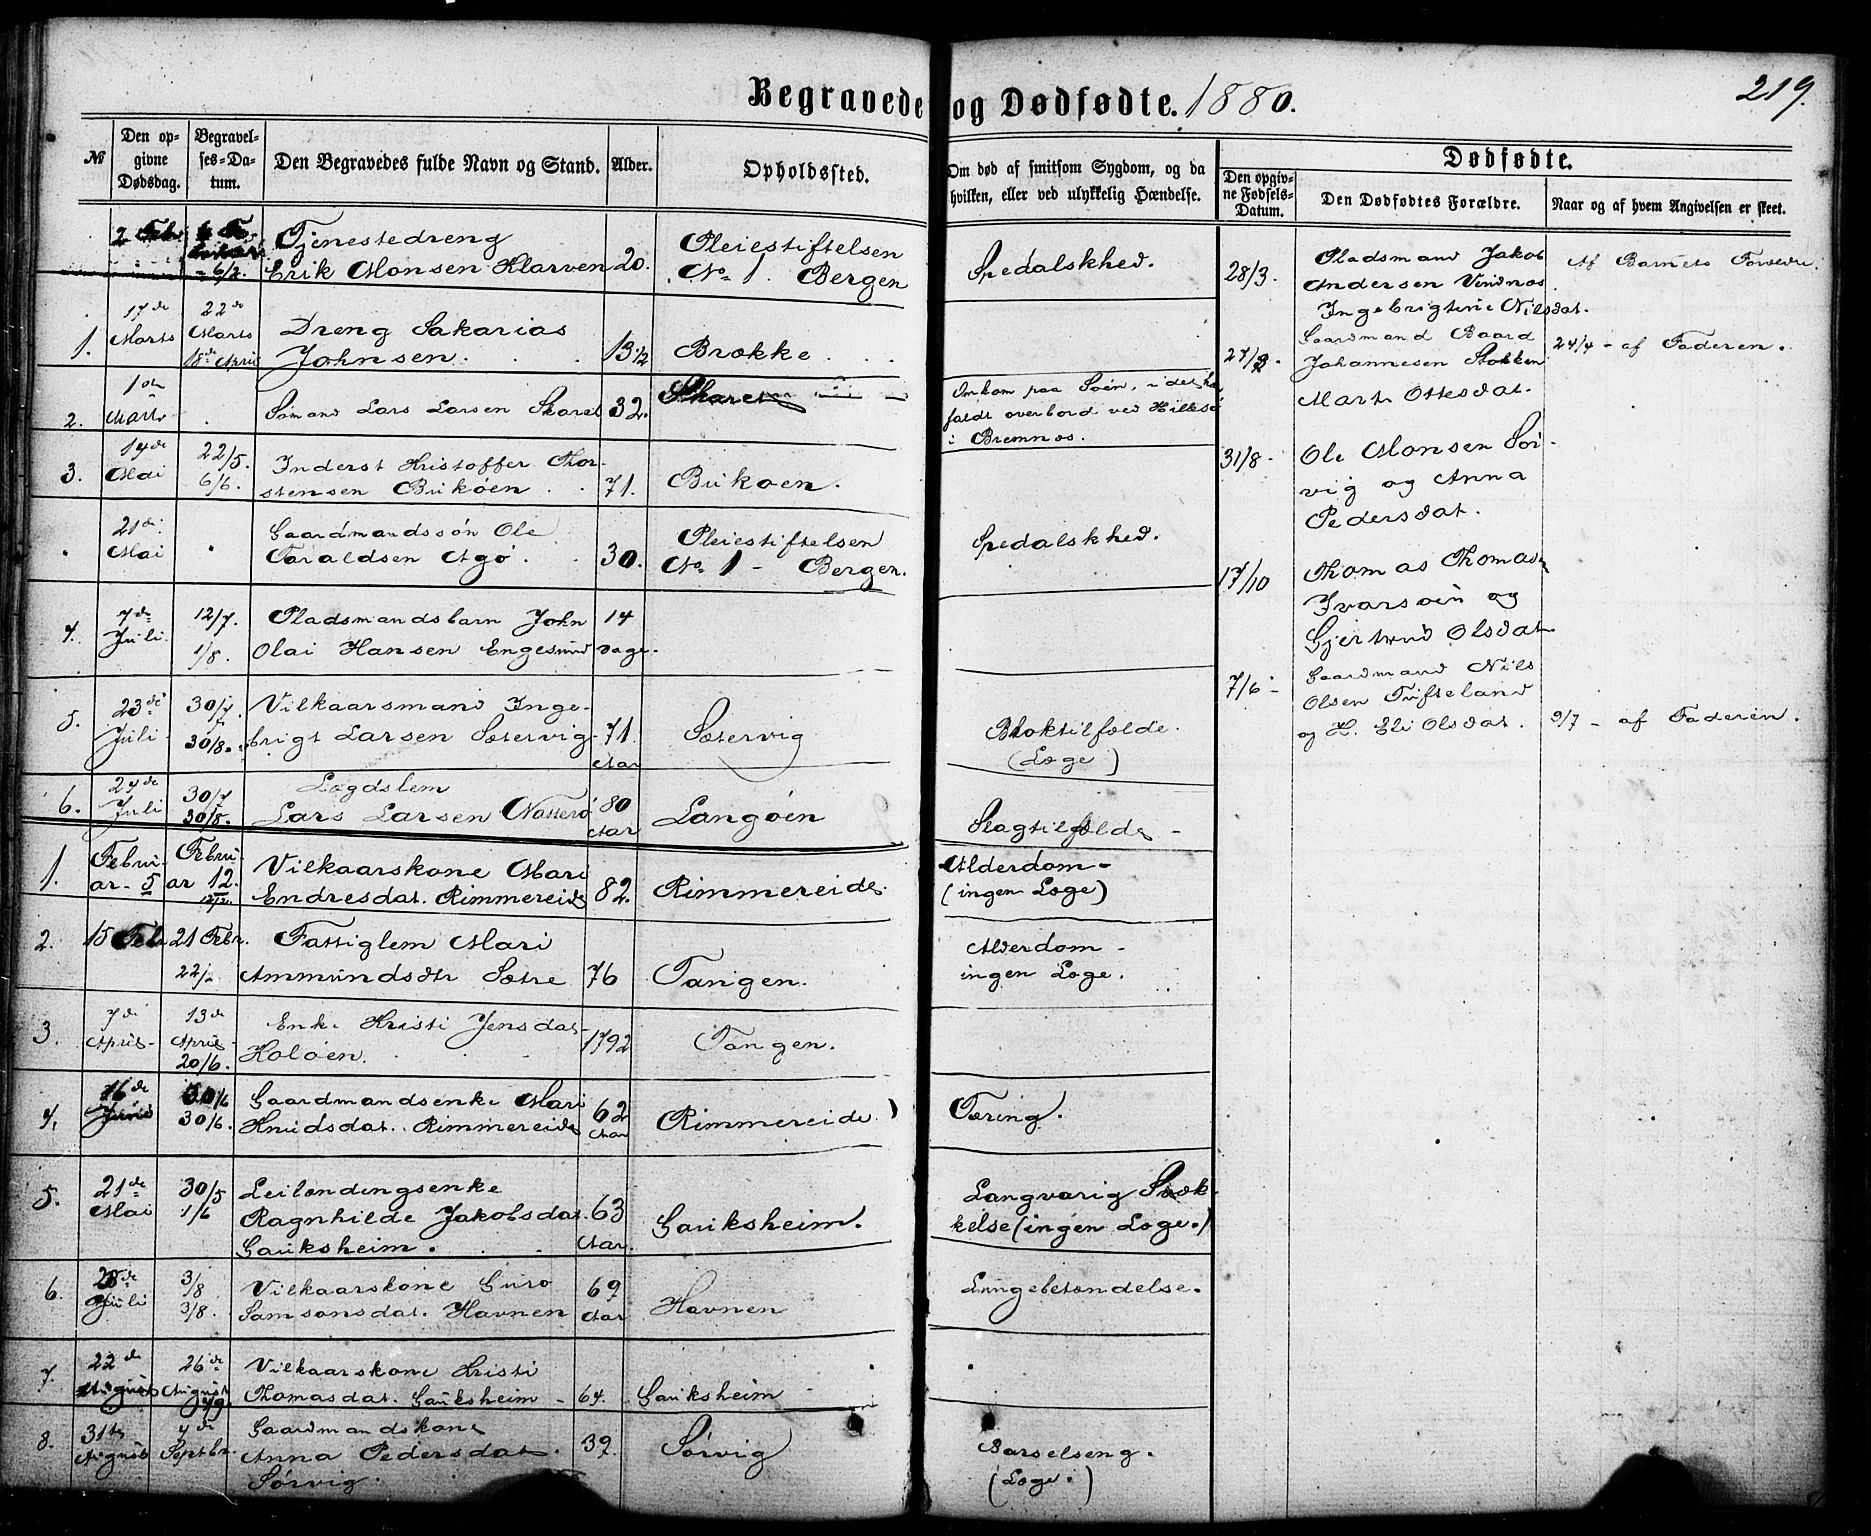 Begravede og Dødfødte. 1880.
219.
№
Den opgivne Dødsdag.
Begravelses-Datum.
Den Begravedes fulde Navn og Stand.
Alder.
Opholdssted.
Om død af smitsom Sygdom, og da hvilken, eller ved ulykkelig Hændelse.
Dødfødte.
Den opgivne Fødsels-Datum.
Den Dødfødtes Forældre.
Naar og af hvem Angivelsen er skeet.
2 Feb
6/2
Tjenestedreng
Erik Monsen Klarven
20.
Pleiestiftelsen
No 1. Bergen
Spedalskhed.
1.
17de Marts
22de Marts
18de April
Dreng Sakarias
Johnsen.
13 1/2
Brække
2.
1ste Marts
Sømand Lars Larsen Skaret
32.
Skaret
Omkom paa Søen, idet han
faldt overbord ved Hillesø
i Bremnæs.
3.
14de Mai
22/5.
6/6.
Inderst Kristoffer Thor-
stensen Bukøen
71.
Bukøen.
21de Mai
Gaardmandssøn Ole
Taraldsen Agø.
30.
Pleiestiftelsen
No 1 - Bergen.
Spedalskhed.
4.
7de Juli.
12/7.
1/8.
Pladsmandsbarn John
Olai Hansen Engesund
14
Dage.
5.
23de Juli
30/7.
30/8.
Vilkaarsmand Inge-
brigt Larsen Sætervig
71.
Aar
Sætervig
Bloktilfælde.
(Læge)
6.
24de Juli
30/7
30/8.
Lægdslem
Lars Larsen Nætterø
80
Aar
Langøen
Slagtilfælde -
1.
Febru-
ar - 5
Febru-
ar 12.
12/2.
Vilkaarskone Mari
Endresdat. Rimmereide
82.
Rimmereide.
Alderdom -
(ingen Læge)
2.
15 Feb.
21 Febr.
22/2
Fattiglem Mari
Ammundsdtr Sætre
76
Tangen.
Alderdom -
ingen Læge.
3.
7de April -
13de April -
20/6.
Enke Kristi Jensdat
Holøen.
1792
Tangen.
4.
16de Juni
30/6.
Gaardmandsenke Mari
Knudsdat. Rimmereide
62
Aar
Rimmereide.
Tæring.
5.
21de Mai
30/5
1/6
Leilændingsenke
Ragnhilde Jakobsdat.
Gauksheim.
63
Aar.
Gauksheim.
Langvarig Svæk-
kelse (ingen Læge.)
6.
28de Juli
3/8
3/8.
Vilkaarskone Guro
Samsonsdat. Havnen
69
Aar
Havnen
Lungebetændelse.
7.
22de August
26de August
Vilkaarskone Kristi
Thomasdat. Gauksheim -
64.
Gauksheim -
8.
31te August
4de Septbr.
Gaardmandskone
Anna Pedersdat.
Sørvig.
39.
Sørvig
Barselseng.
(Læge.)
28/3.
Pladsmand Jakob
Andersen Vindnæs
Ingebrigtine Nilsdat.
Af Barnets Forældre.
Gaardmand Baard
Johannesen Stokken
Marta Ottesdat.
24/4 - af Faderen.
31/8 -
Ole Monsen Sør-
vig og Anna
Pedersdat.
17/10
Thomas Thomas
Ivarsøen og
Gjertrud Olsdat
7/6 -
Gaardmand Nils
Olsen Tufteland
og H. Eli Olsdat.
9/7 - af Faderen.